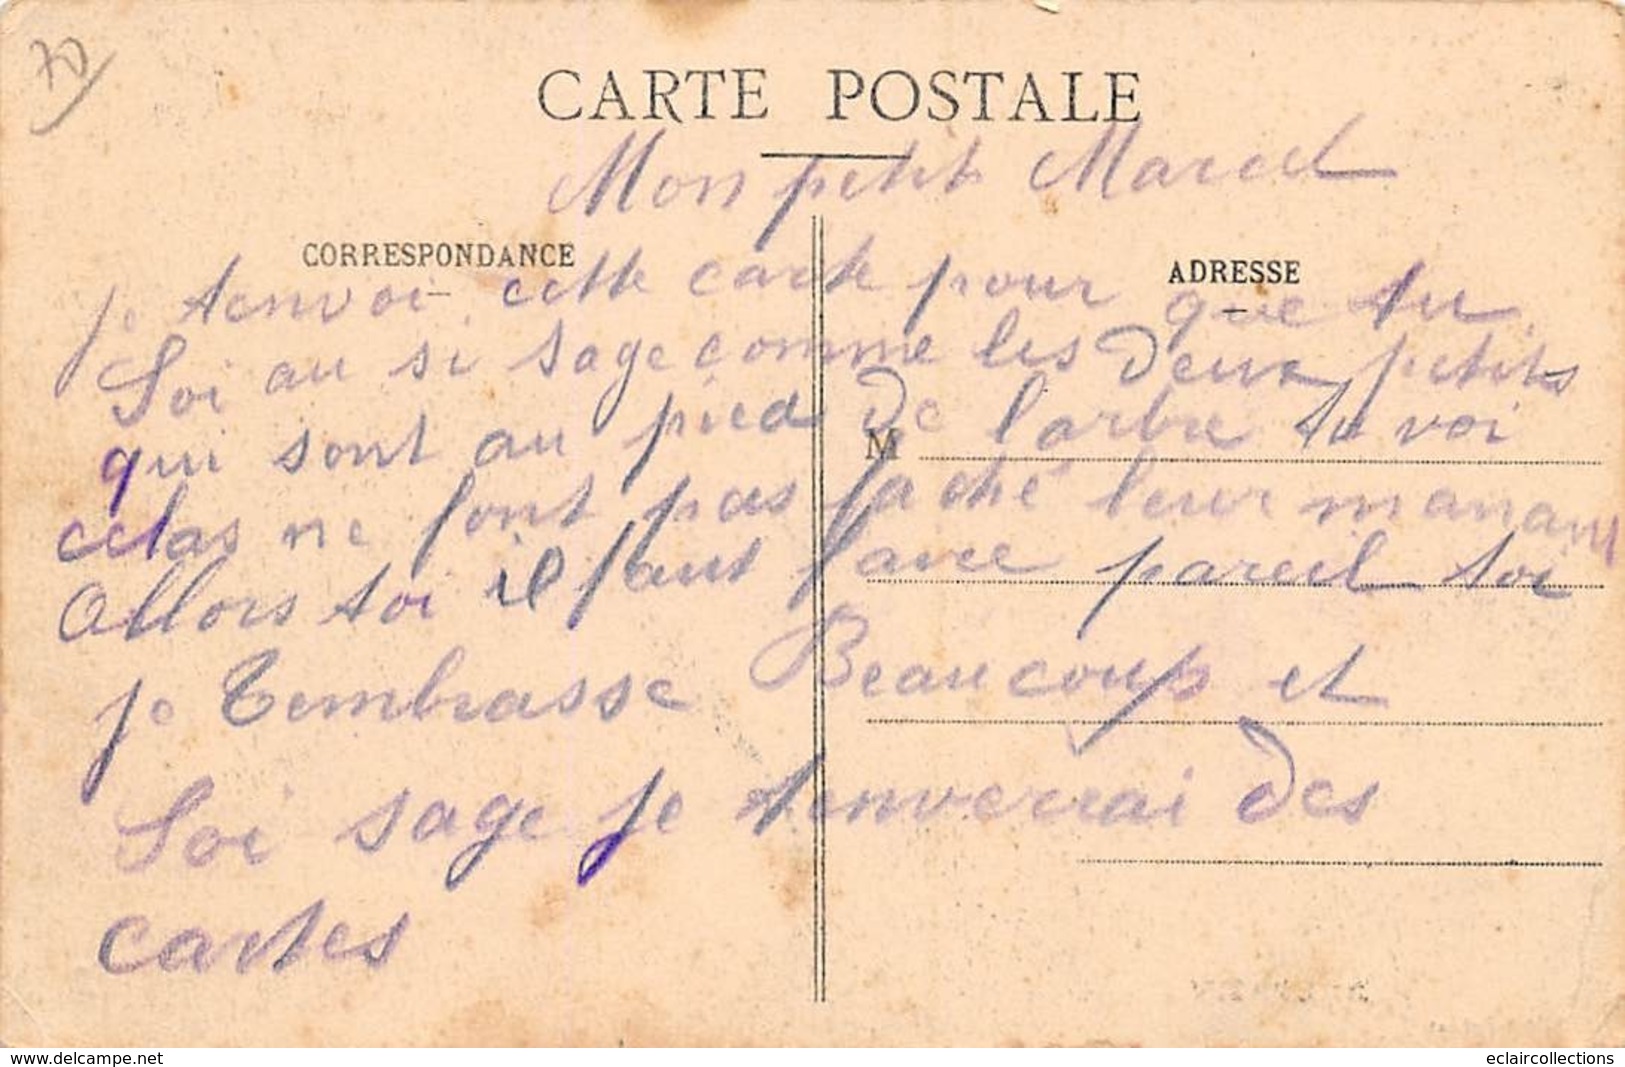 70
CARTE POSTALE
Mon petit Marcel
CORRESPONDANCE
ADRESSE
je tenvoi cette carte pour que tu
Soi au si sage comme les deux petits
qui sont au pied de larbre tu voi
M
celas ne font pas faché leur manant
Allors toi il faut faire pareil toi
je Tembrasse Beaucoup et
Soi sage je tenverrai des
cartes
www.delcampe.net
eclaircollections